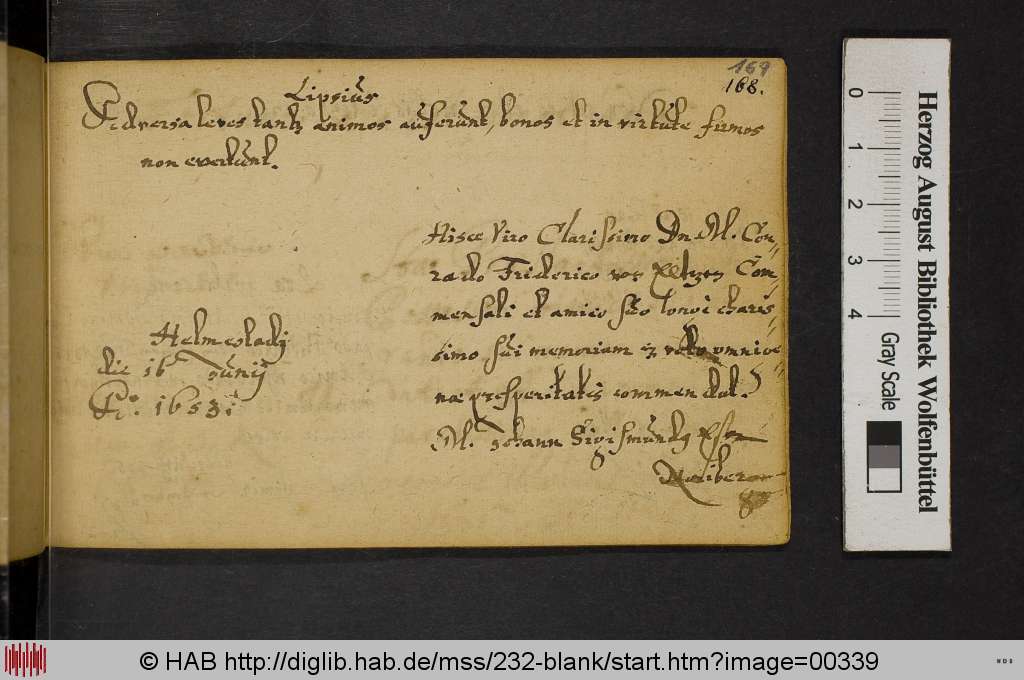 169
168.
Lipsius
Adversa leves tantũ animos auferunt, bonos et in virtute firmos
non evertunt.
Hisce Viro Clarissimo Dn. M. Con-
rado Friderico von Com-
mensali et amico suo longè charis-
simo, sui memoriam omnige-
næ prosperitatis commendat.
M. Johann Sigismundg
Helmestadij
die 16 Junij
Aº. 1653
Herzog August Bibliothek Wolfenbüttel
0 1 2 3 4
Gray Scale
© HAB http://diglib.hab.de/mss/232-blank/start.htm?image=00339